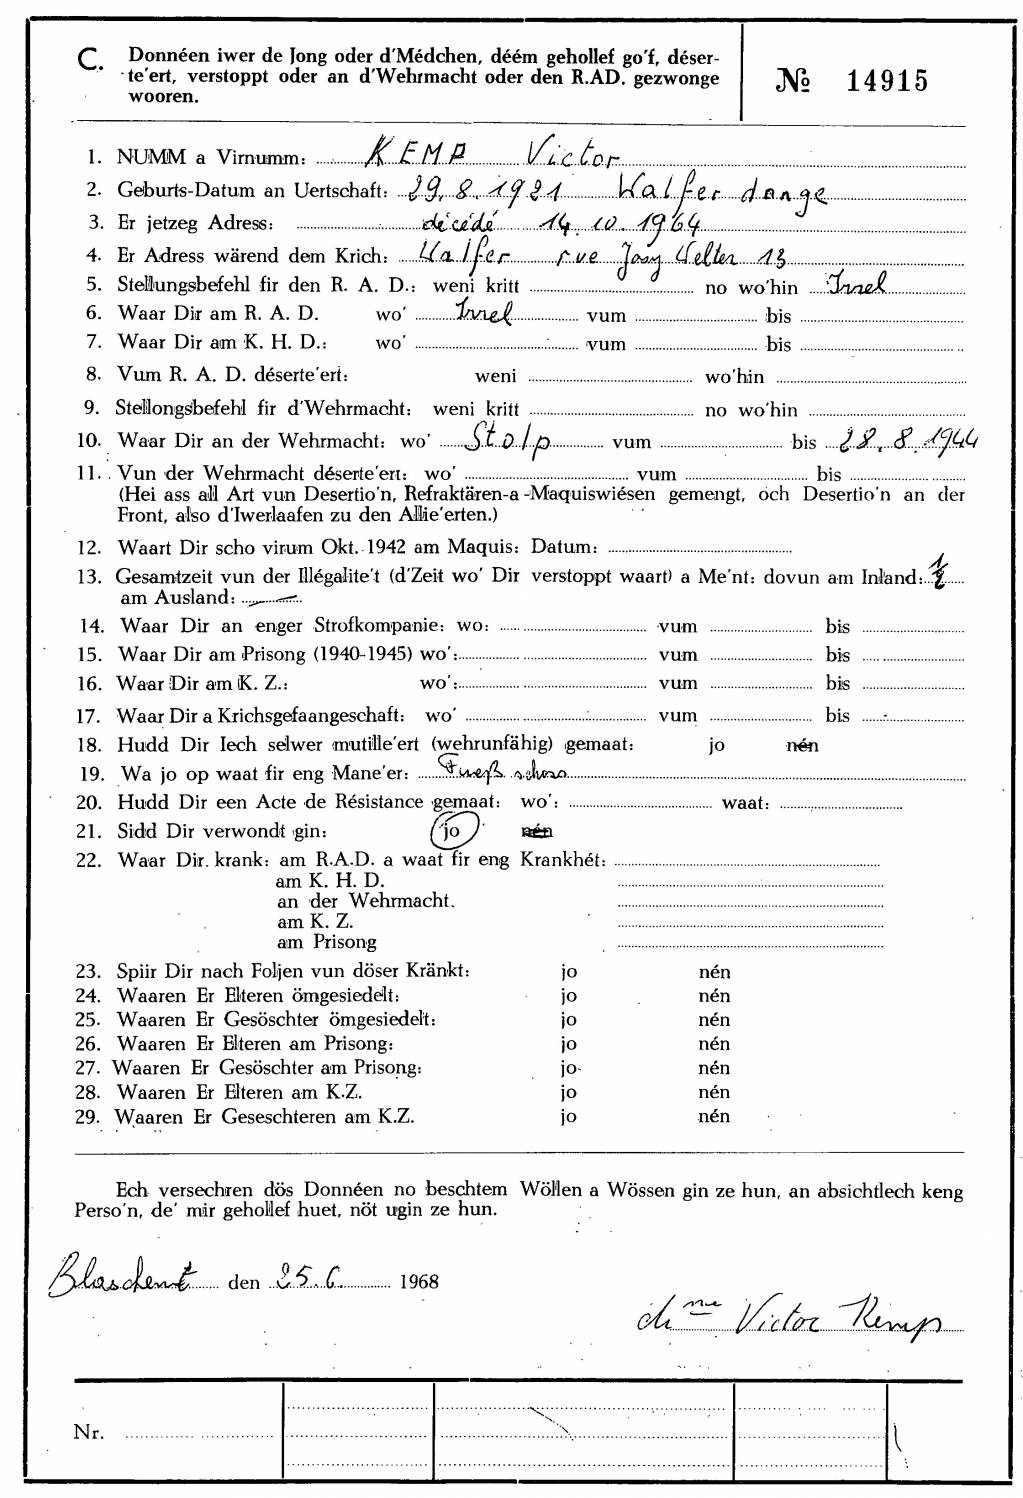 C. Donnéen iwer de Jong oder d'Médchen, déém gehollef go'f, déser-
te'ert, verstoppt oder an d'Wehrmacht oder den R.AD. gezwonge
wooren.
№ 14915
1. NUMM a Virnumm: KEMP Victor
2. Geburts-Datum an Uertschaft: 29.8.1921 Walferdange
3. Er jetzeg Adress: décédé 14.10.1964
4. Er Adress wärend dem Krich: Walfer rue Josy Welter 13
5. Stellungsbefehl fir den R. A. D.: weni kritt no wo'hin Insel
6. Waar Dir am R. A. D. wo' Insel vum bis
7. Waar Dir am K. H. D.: wo' vum bis
8. Vum R. A. D. déserte'ert: weni wo'hin
9. Stellongsbefehl fir d'Wehrmacht: weni kritt no wo'hin
10. Waar Dir an der Wehrmacht: wo' Stolp vum bis 28.8.1944
11. Vun der Wehrmacht déserte'ert: wo' vum bis
(Hei ass all Art vun Desertio'n, Refraktären-a-Maquiswiésen gemengt, och Desertio'n an der
Front, also d'Iwerlaafen zu den Allie'erten.)
12. Waart Dir scho virum Okt. 1942 am Maquis: Datum:
13. Gesamtzeit vun der Illégalite't (d'Zeit wo' Dir verstoppt waart) a Me'nt: dovun am Inland:
am Ausland: —
14. Waar Dir an enger Strofkompanie: wo: vum bis
15. Waar Dir am Prisong (1940-1945) wo': vum bis
16. Waar Dir am K. Z.: wo': vum bis
17. Waar Dir a Krichsgefaangeschaft: wo' vum bis
18. Hudd Dir Iech selwer mutille'ert (wehrunfähig) gemaat: jo nén
19. Wa jo op waat fir eng Mane'er:
20. Hudd Dir een Acte de Résistance gemaat: wo': waat:
21. Sidd Dir verwondt gin: jo nén
22. Waar Dir krank: am R.A.D. a waat fir eng Krankhét:
am K. H. D.
an der Wehrmacht.
am K. Z.
am Prisong
23. Spiir Dir nach Foljen vun döser Kränkt: jo nén
24. Waaren Er Elteren ömgesiedelt: jo nén
25. Waaren Er Gesöschter ömgesiedelt: jo nén
26. Waaren Er Elteren am Prisong: jo nén
27. Waaren Er Gesöschter am Prisong: jo nén
28. Waaren Er Elteren am K.Z. jo nén
29. Waaren Er Geseschteren am K.Z. jo nén
Ech versechren dös Donnéen no beschtem Wöllen a Wössen gin ze hun, an absichtlech keng
Perso'n, de' mir gehollef huet, nöt ugin ze hun.
Blaschent den 25.6. 1968
Victor Kemp
Nr.